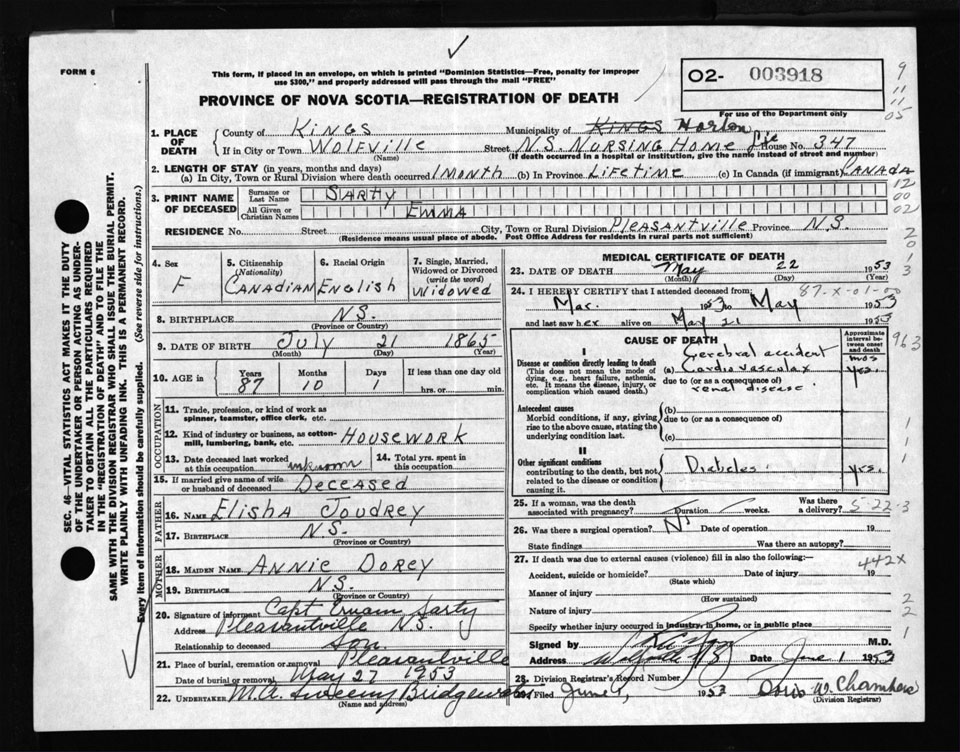 FORM 6
This form, if placed in an envelope, on which is printed "Dominion Statistics—Free, penalty for improper
use $300," and properly addressed will pass through the mail "FREE"
O2- 003918
For use of the Department only
PROVINCE OF NOVA SCOTIA—REGISTRATION OF DEATH
9
11
11
05
1. PLACE OF DEATH
County of Kings Municipality of Kings Horton
If in City or Town Wolfville Street N.S. Nursing Home House No. 347
(Name) (If death occurred in a hospital or institution, give the name instead of street and number)
2. LENGTH OF STAY (in years, months and days)
(a) In City, Town or Rural Division where death occurred 1 month (b) In Province Lifetime (c) In Canada (if immigrant) Canada
12
00
02
3. PRINT NAME OF DECEASED
Surname or Last Name Sarty
All Given or Christian Names Emma
RESIDENCE No. Street City, Town or Rural Division Pleasantville Province N.S.
(Residence means usual place of abode. Post Office Address for residents in rural parts not sufficient)
4. Sex F
5. Citizenship (Nationality) Canadian
6. Racial Origin English
7. Single, Married, Widowed or Divorced (write the word) Widowed
8. BIRTHPLACE N.S.
(Province or Country)
9. DATE OF BIRTH July 21 1865
(Month) (Day) (Year)
10. AGE in Years 87 Months 10 Days 1 If less than one day old
hrs. or min.
OCCUPATION
11. Trade, profession, or kind of work as spinner, teamster, office clerk, etc.
12. Kind of industry or business, as cotton-mill, lumbering, bank, etc. Housework
13. Date deceased last worked at this occupation unknown
14. Total yrs. spent in this occupation
15. If married give name of wife or husband of deceased Deceased
FATHER
16. NAME Elisha Joudrey
17. BIRTHPLACE N.S.
(Province or Country)
MOTHER
18. MAIDEN NAME Annie Dorey
19. BIRTHPLACE N.S.
(Province or Country)
20. Signature of informant Capt Sarty
Address Pleasantville N.S.
Relationship to deceased Son
21. Place of burial, cremation or removal Pleasantville
Date of burial or removal May 27 1953
22. UNDERTAKER M.A. Sweeny Bridgewater
(Name and address)
MEDICAL CERTIFICATE OF DEATH
23. DATE OF DEATH May 22 1953
(Month) (Day) (Year)
24. I HEREBY CERTIFY that I attended deceased from: 87-X-01-00
Mar. 1953 to May 1953
and last saw her alive on May 21 1953
CAUSE OF DEATH
Approximate interval between onset and death
963
I
Disease or condition directly leading to death
(This does not mean the mode of dying, e.g., heart failure, asthenia, etc. It means the disease, injury, or complication which caused death.)
Cerebral accident
(a) Cardio vascular yrs.
due to (or as a consequence of)
renal disease.
Antecedent causes
Morbid conditions, if any, giving rise to the above cause, stating the underlying condition last.
(b)
due to (or as a consequence of)
(c)
II
Other significant conditions
contributing to the death, but not related to the disease or condition causing it.
Diabetes. yrs.
25. If a woman, was the death associated with pregnancy? Duration weeks. Was there a delivery? 5-22-3
26. Was there a surgical operation? No Date of operation 19
State findings Was there an autopsy?
27. If death was due to external causes (violence) fill in also the following:— 442X
Accident, suicide or homicide? Date of injury 19
(State which)
Manner of injury
(How sustained)
Nature of injury
Specify whether injury occurred in industry, in home, or in public place
Signed by M.D.
Address Wolfville Date June 1 1953
28. Division Registrar's Record Number
29. Filed June 1953 Doris W. Chambers
(Division Registrar)
SEC. 46—VITAL STATISTICS ACT MAKES IT THE DUTY
OF THE UNDERTAKER OR PERSON ACTING AS UNDER-
TAKER TO OBTAIN ALL THE PARTICULARS REQUIRED
IN THE "REGISTRATION OF DEATH" AND TO FILE THE
SAME WITH THE DIVISION REGISTRAR WHO SHALL ISSUE THE BURIAL PERMIT.
WRITE PLAINLY WITH UNFADING INK. THIS IS A PERMANENT RECORD.
Every item of information should be carefully supplied. (See reverse side for instructions.)